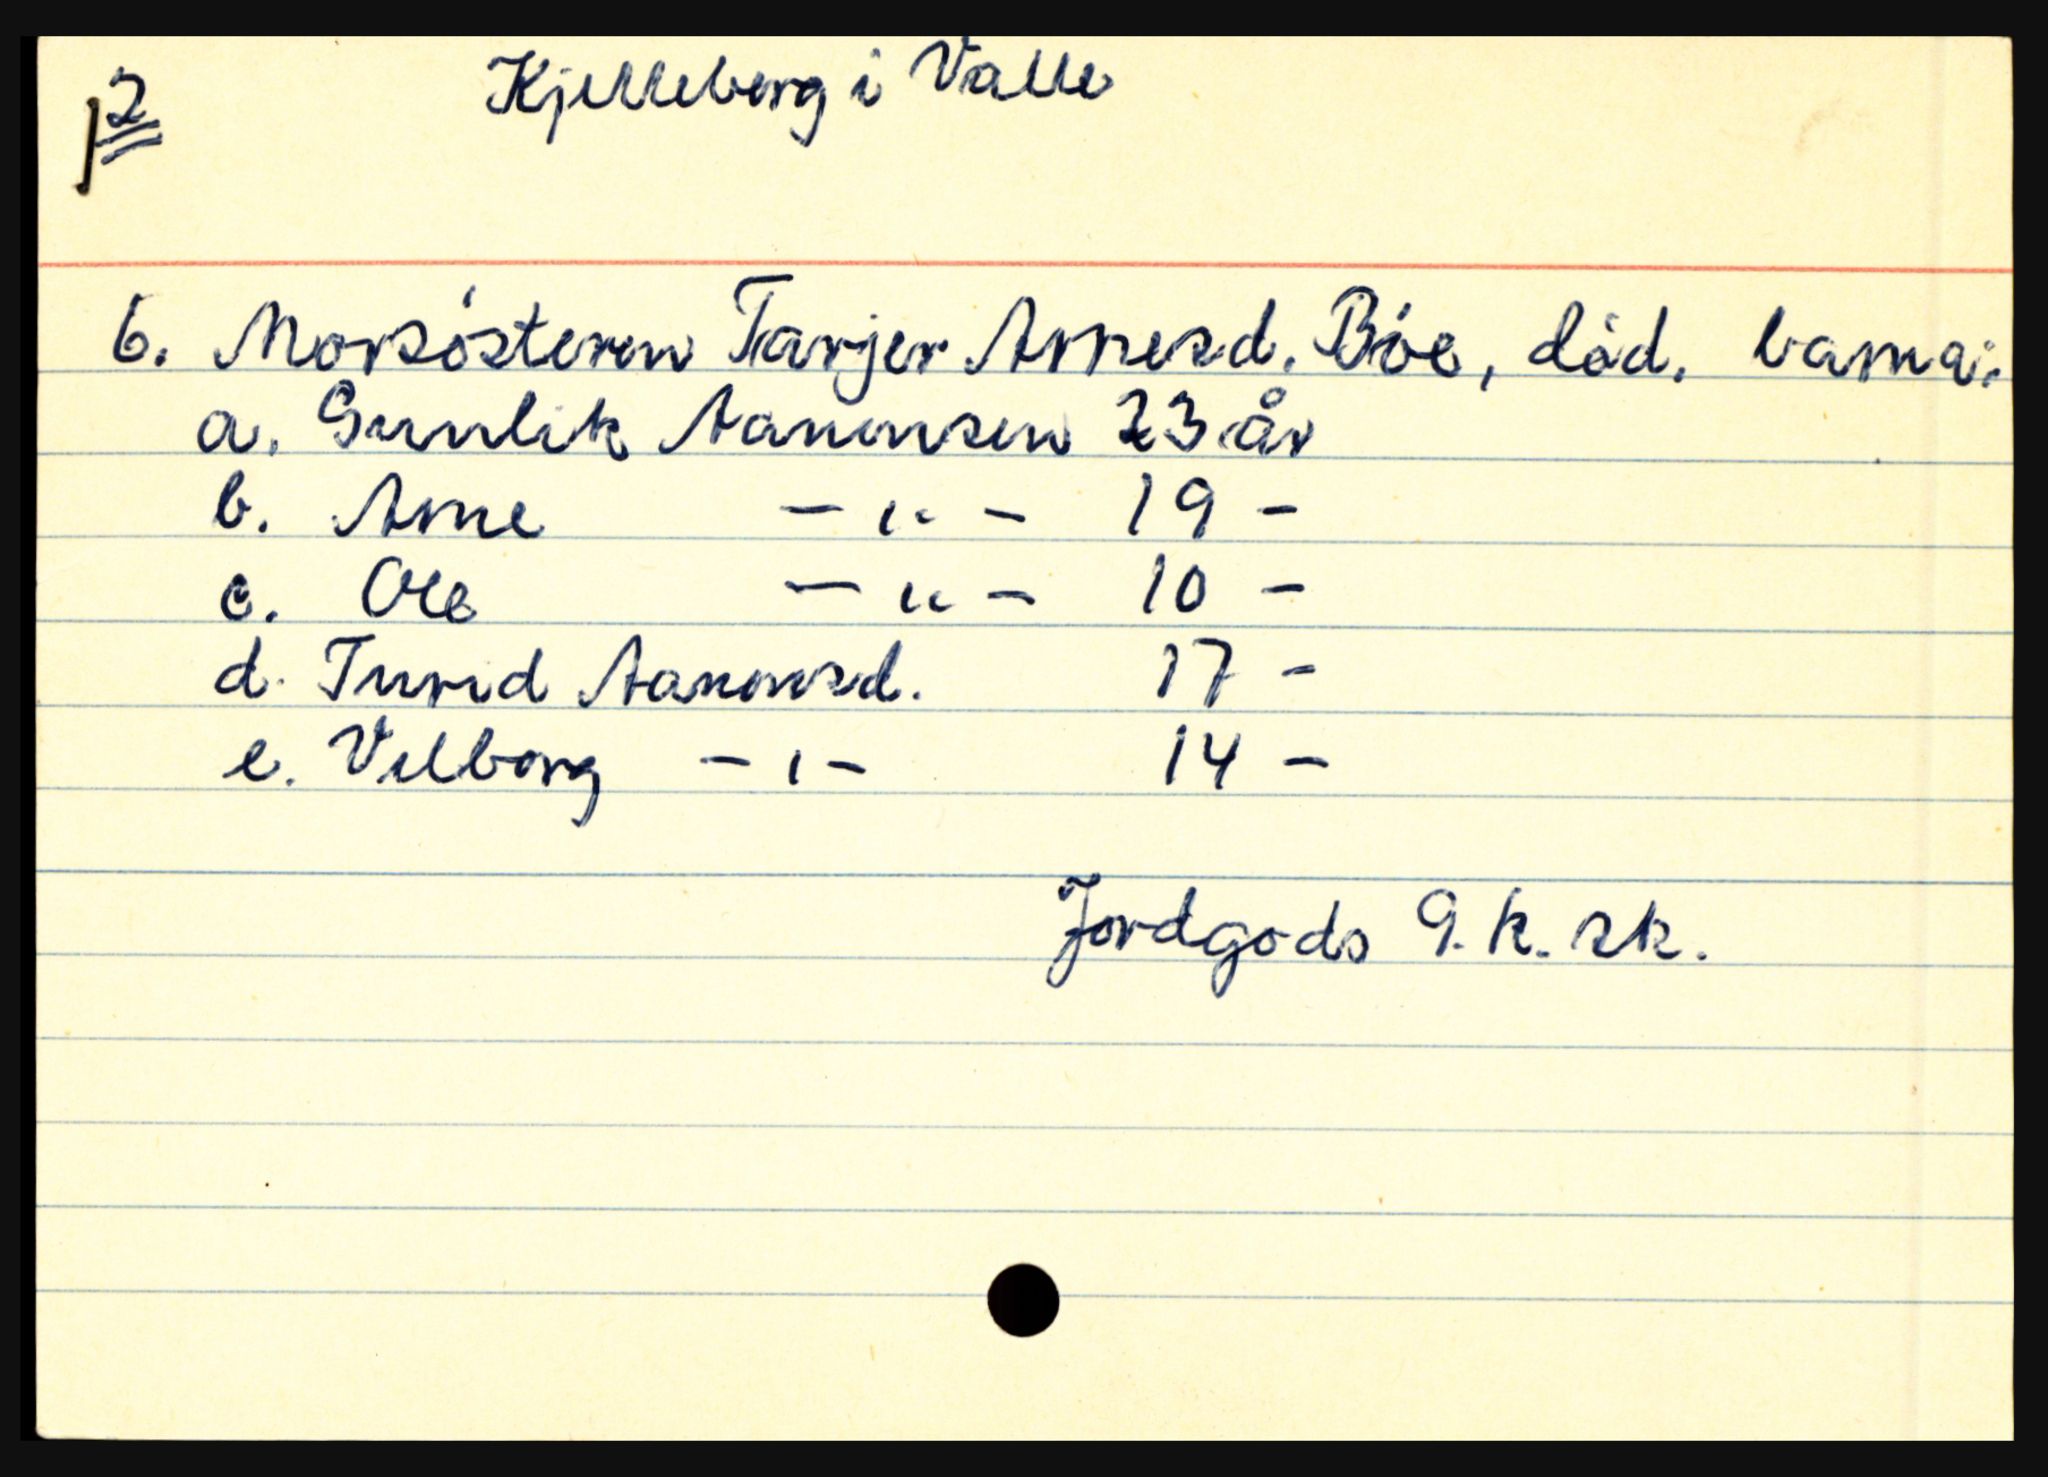 2
Kjelleberg i Valle
6. Morsösteren Tarjer Arnesd. Böe, död. barna:
a. Gunlik Aanonsen 23 år
b. Arne – " – 19 –
c. Ole – " – 10 –
d. Turid Aanonsd. 17 –
e. Vilborg – " – 14 –
Jordgods 9. k. sk.